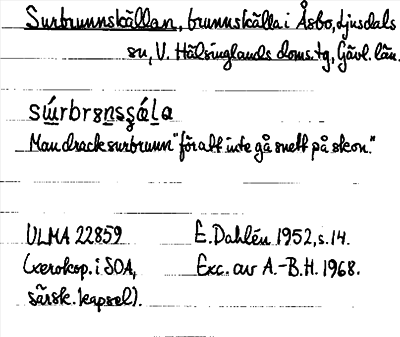 Surbrunnskällan, brunnskälla i Åsbo, Ljusdals
sn, V. Hälsinglands doms.tg, Gävl. län.
Man drack surbrunn "för att inte gå snett på skon."
ULMA 22859
(xerokop. i SOA,
särsk. kapsel).
E. Dahlén 1952, s. 14.
Exc. av A.-B.H. 1968.